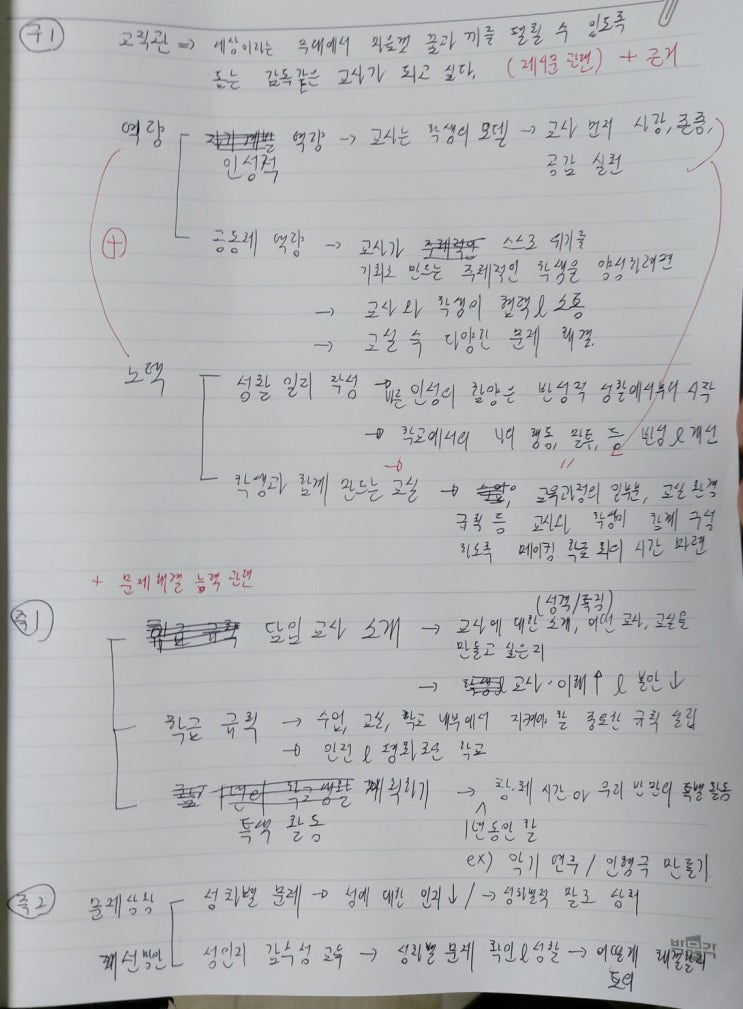 구1
교직관 => 세상이라는 무대에서 외운 꿈과 끼를 펼칠 수 있도록
돕는 감독같은 교사가 되고 싶다. (제4문 관련) + 근거
역량
자기계발 역량 → 교사는 학생의 모델 → 교사 먼저 사랑, 존중,
인성적 공감 실천
+
공동체 역량 → 교사가 주체적인 스스로 위기를
기회로 만드는 주체적인 학생을 양성하려면
→ 교사와 학생이 협력 & 소통
→ 교실 속 다양한 문제 해결
노력
성찰 일지 작성 → 바른 인성의 함양은 반성적 성찰에서부터 시작
→ 학교에서의 나의 행동, 말투, 등 반성 & 개선
학생과 함께 만드는 교실 → 교육과정의 일부분, 교실 환경
규칙 등 교사와 학생이 함께 구성
하도록 메이킹 학급 회의 시간 마련
+ 문제해결 능력 관련
즉1
(성격/특징)
학급 규칙 담임 교사 소개 → 교사에 대한 소개, 어떤 교사, 교실을
만들고 싶은지
→ 교사 이해↑ & 불안↓
학급 규칙 → 수업, 교실, 학교 내부에서 지켜야 할 중요한 규칙 설립
→ 안전 & 평화로운 학교
1년의 학교생활 계획하기 → 창·체 시간 우리 반만의 특별활동
특색 활동 1년동안 할
ex) 악기 연주 / 인형극 만들기
즉2
문제상황 성차별 문제 → 성에 대한 인지↓ / → 성희롱적 말로 상처
개선방안 성인지 감수성 교육 → 성차별 문제 확인 & 성찰 → 어떻게 해결할지
토의
박문각